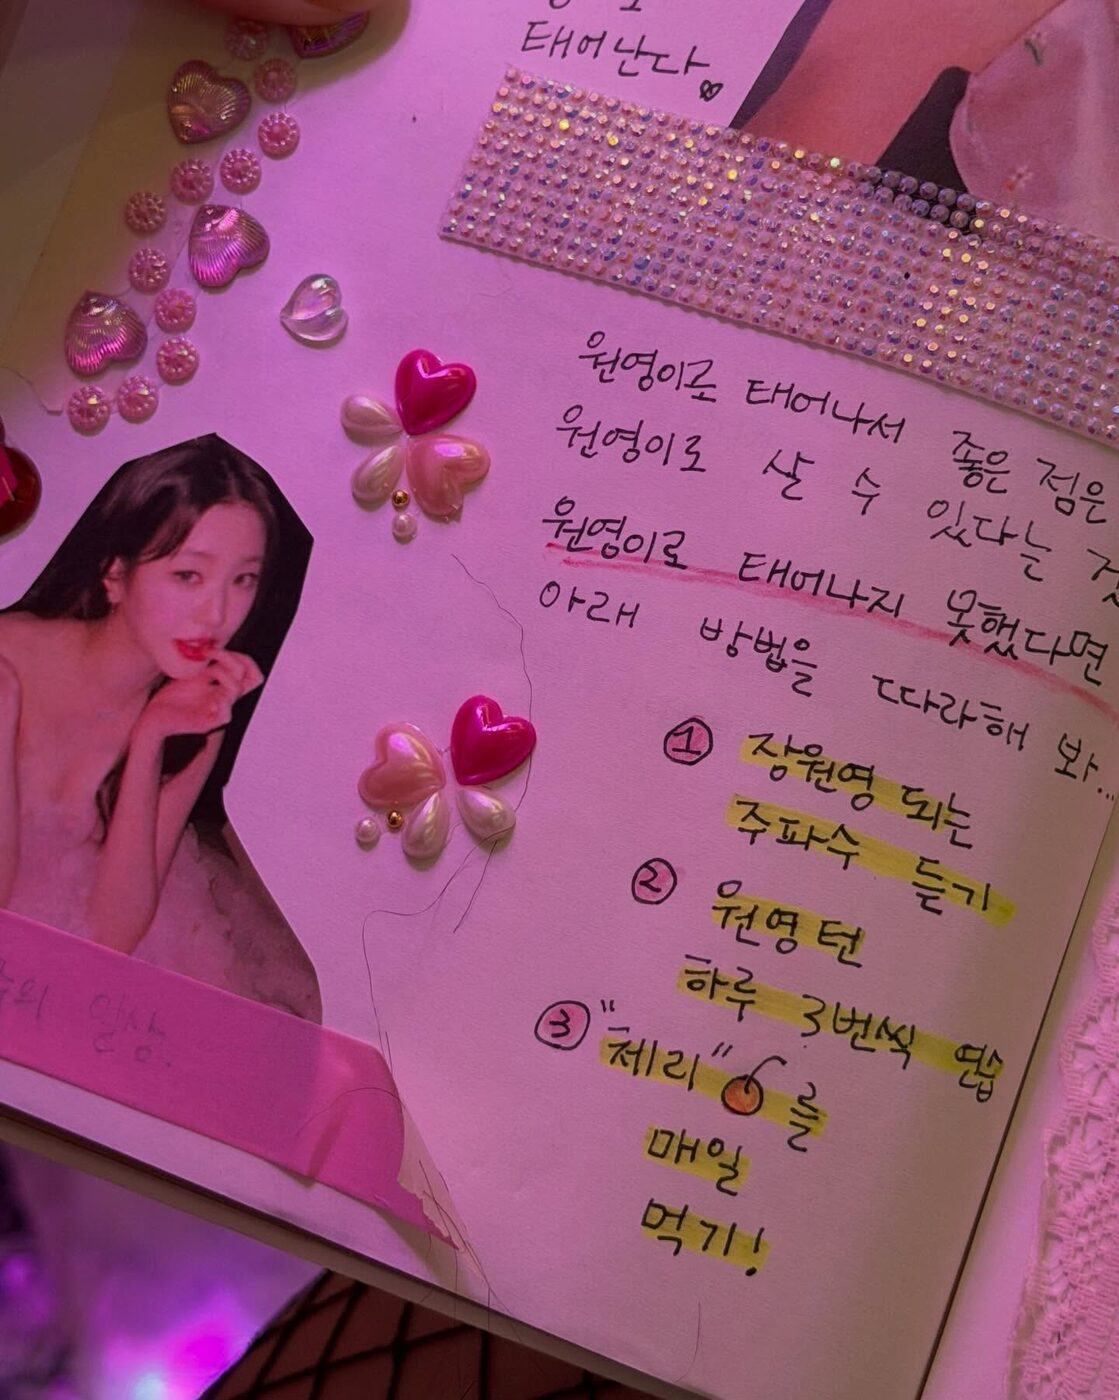 태어난다♡
원영이로 태어나서 좋은 점은
원영이로 살 수 있다는
원영이로 태어나지 못했다면
아래 방법을 따라해 봐...
① 장원영 되는
주파수 듣기
② 원영턴
하루 3번씩 연습
③ "체리"를
매일
먹기!
일상.